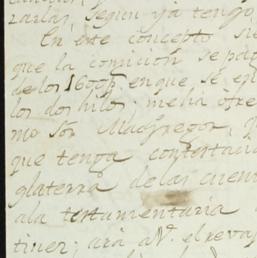 zarlas, segun ya tengo
En este concepto
que la comicion se pa
de los 1600p en que se
los dos hilos; me ha ofre
mo Sor MacGregor,
que tenga contestacio
glaterra de las cuen
ala testamentaria
tiner; ará aV. el